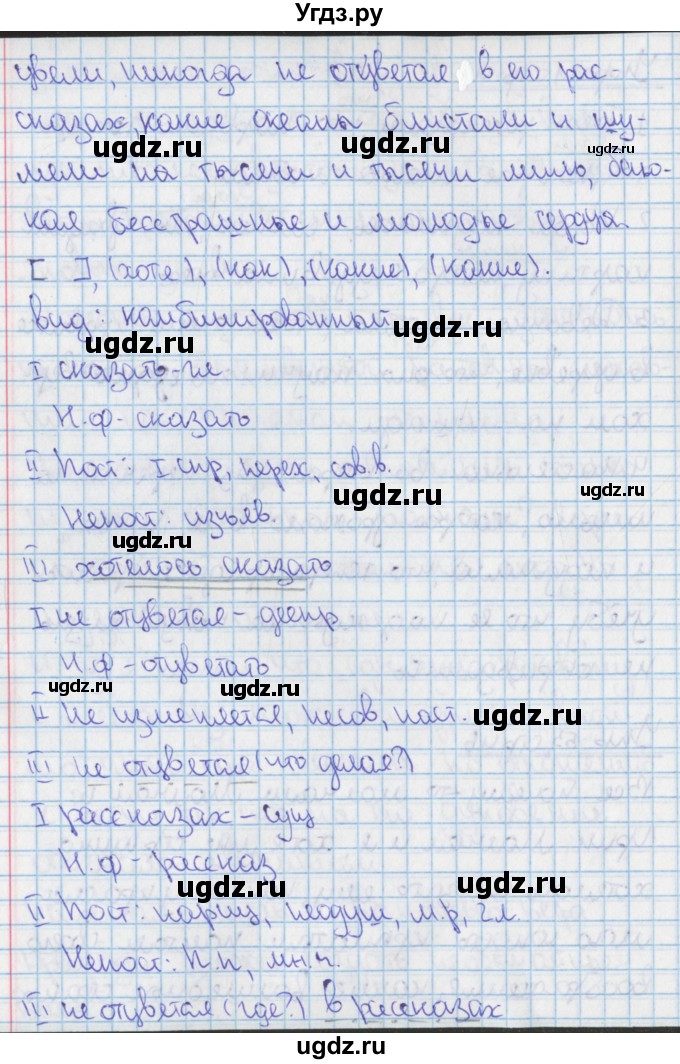 Угдз.ру
цвели, никогда не отцветая в его рас-
сказах, какие океаны блистали и шу-
ugdz.ru ugdz.ru
мели на тысячи и тысячи миль, балю-
ugdz.ru
кая бесстрашные и молодые сердца.
[ ], (хотя), (как), (какие), (какие).
вид: комбинированный
ugdz.ru ugdz.ru
I сказать - гл
Н.ф - сказать
II Пост: I спр, перех, сов.в.
ugdz.ru ugdz.ru
Непост: изъяв.
ugdz.ru
III хотелось сказать
I не отцветая - деепр
Н.ф - отцветать
ugdz.ru ugdz.ru
II Не изменяется, несов, наст.
ugdz.ru
III не отцветая (что делая?)
I рассказах - сущ
Н.ф - рассказ
ugdz.ru ugdz.ru
II Пост: нариц, неодуш, м.р, 2 л.
Непост: П.п, мн.ч.
III не отцветая (где?) в рассказах
ugdz.ru